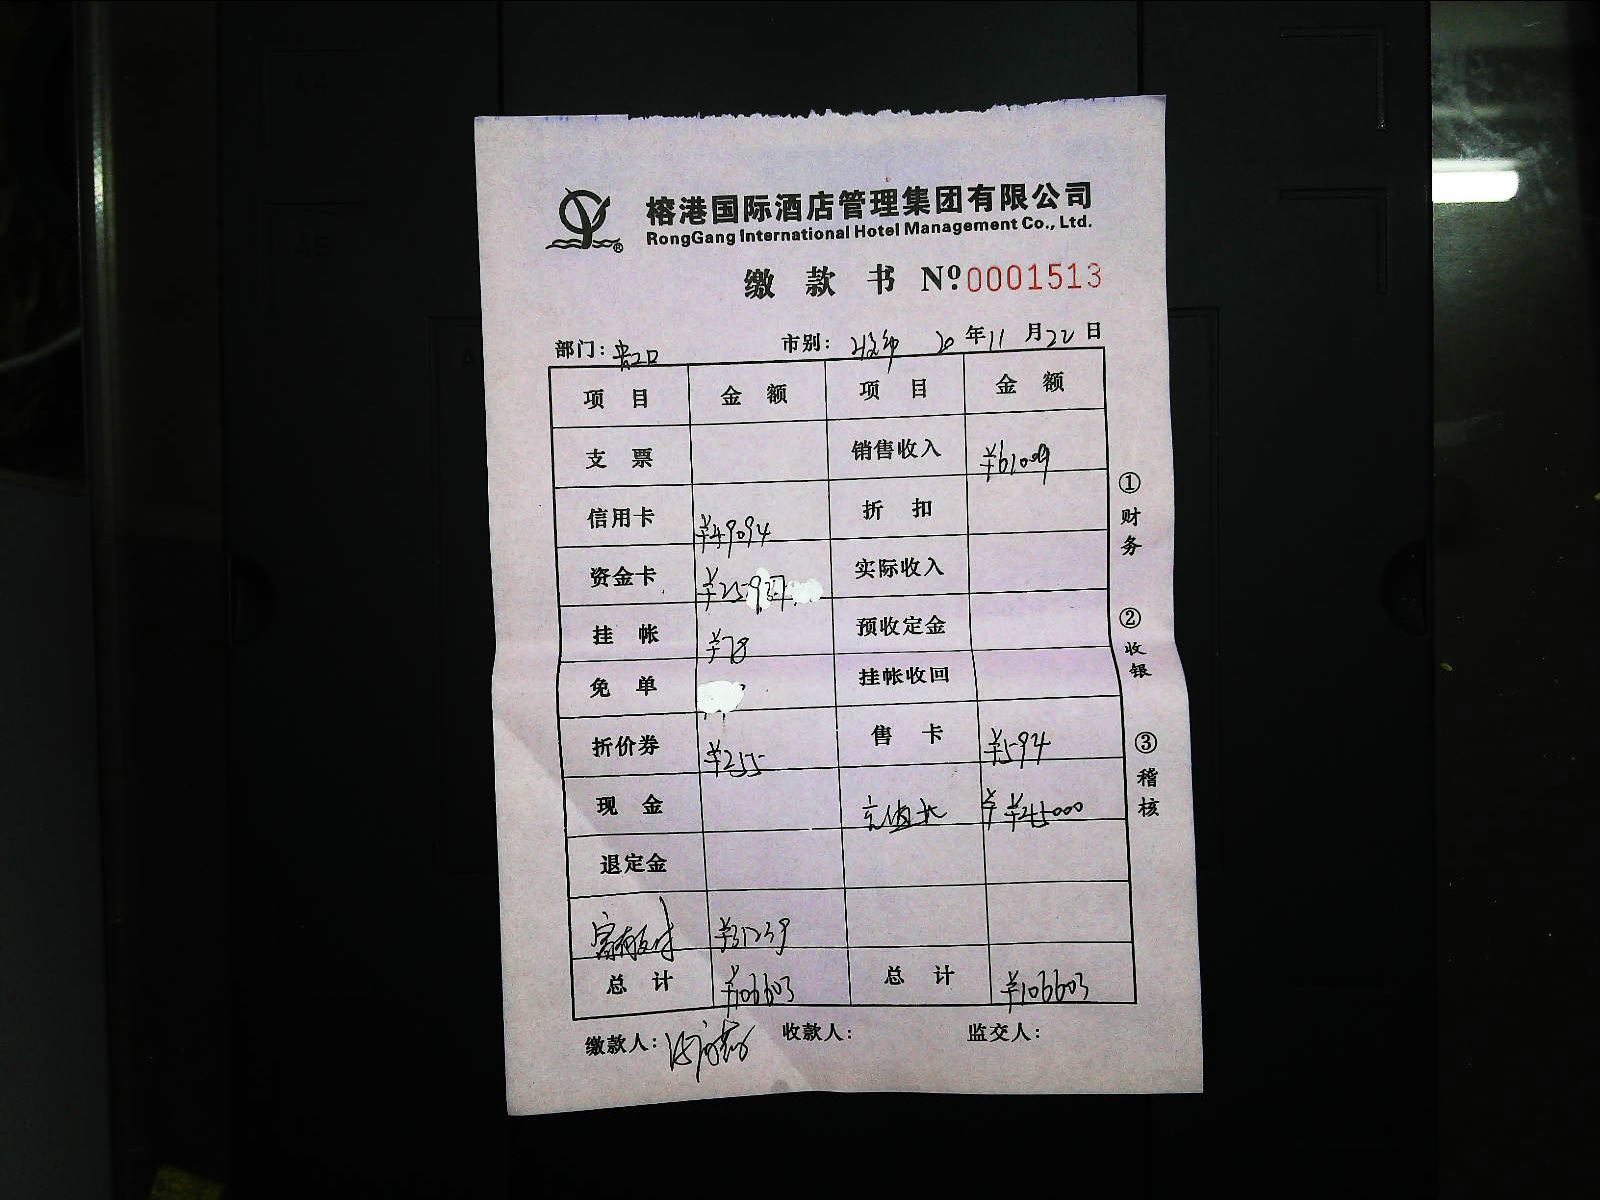 榕港国际酒店管理集团有限公司
RongGang International Hotel Management Co., Ltd.
缴款书 Nº 0001513
部门: 市别: 20年11月22日
项目 金额 项目 金额
支票 销售收入 ¥61009
信用卡 ¥49094 折扣
资金卡 ¥25937 实际收入
挂帐 ¥78 预收定金
免单 挂帐收回
折价券 ¥255 售卡 ¥594
现金 ¥ ¥45000
退定金
¥31239
总计 ¥106603 总计 ¥106603
缴款人: 收款人: 监交人:
①财务 ②收银 ③稽核